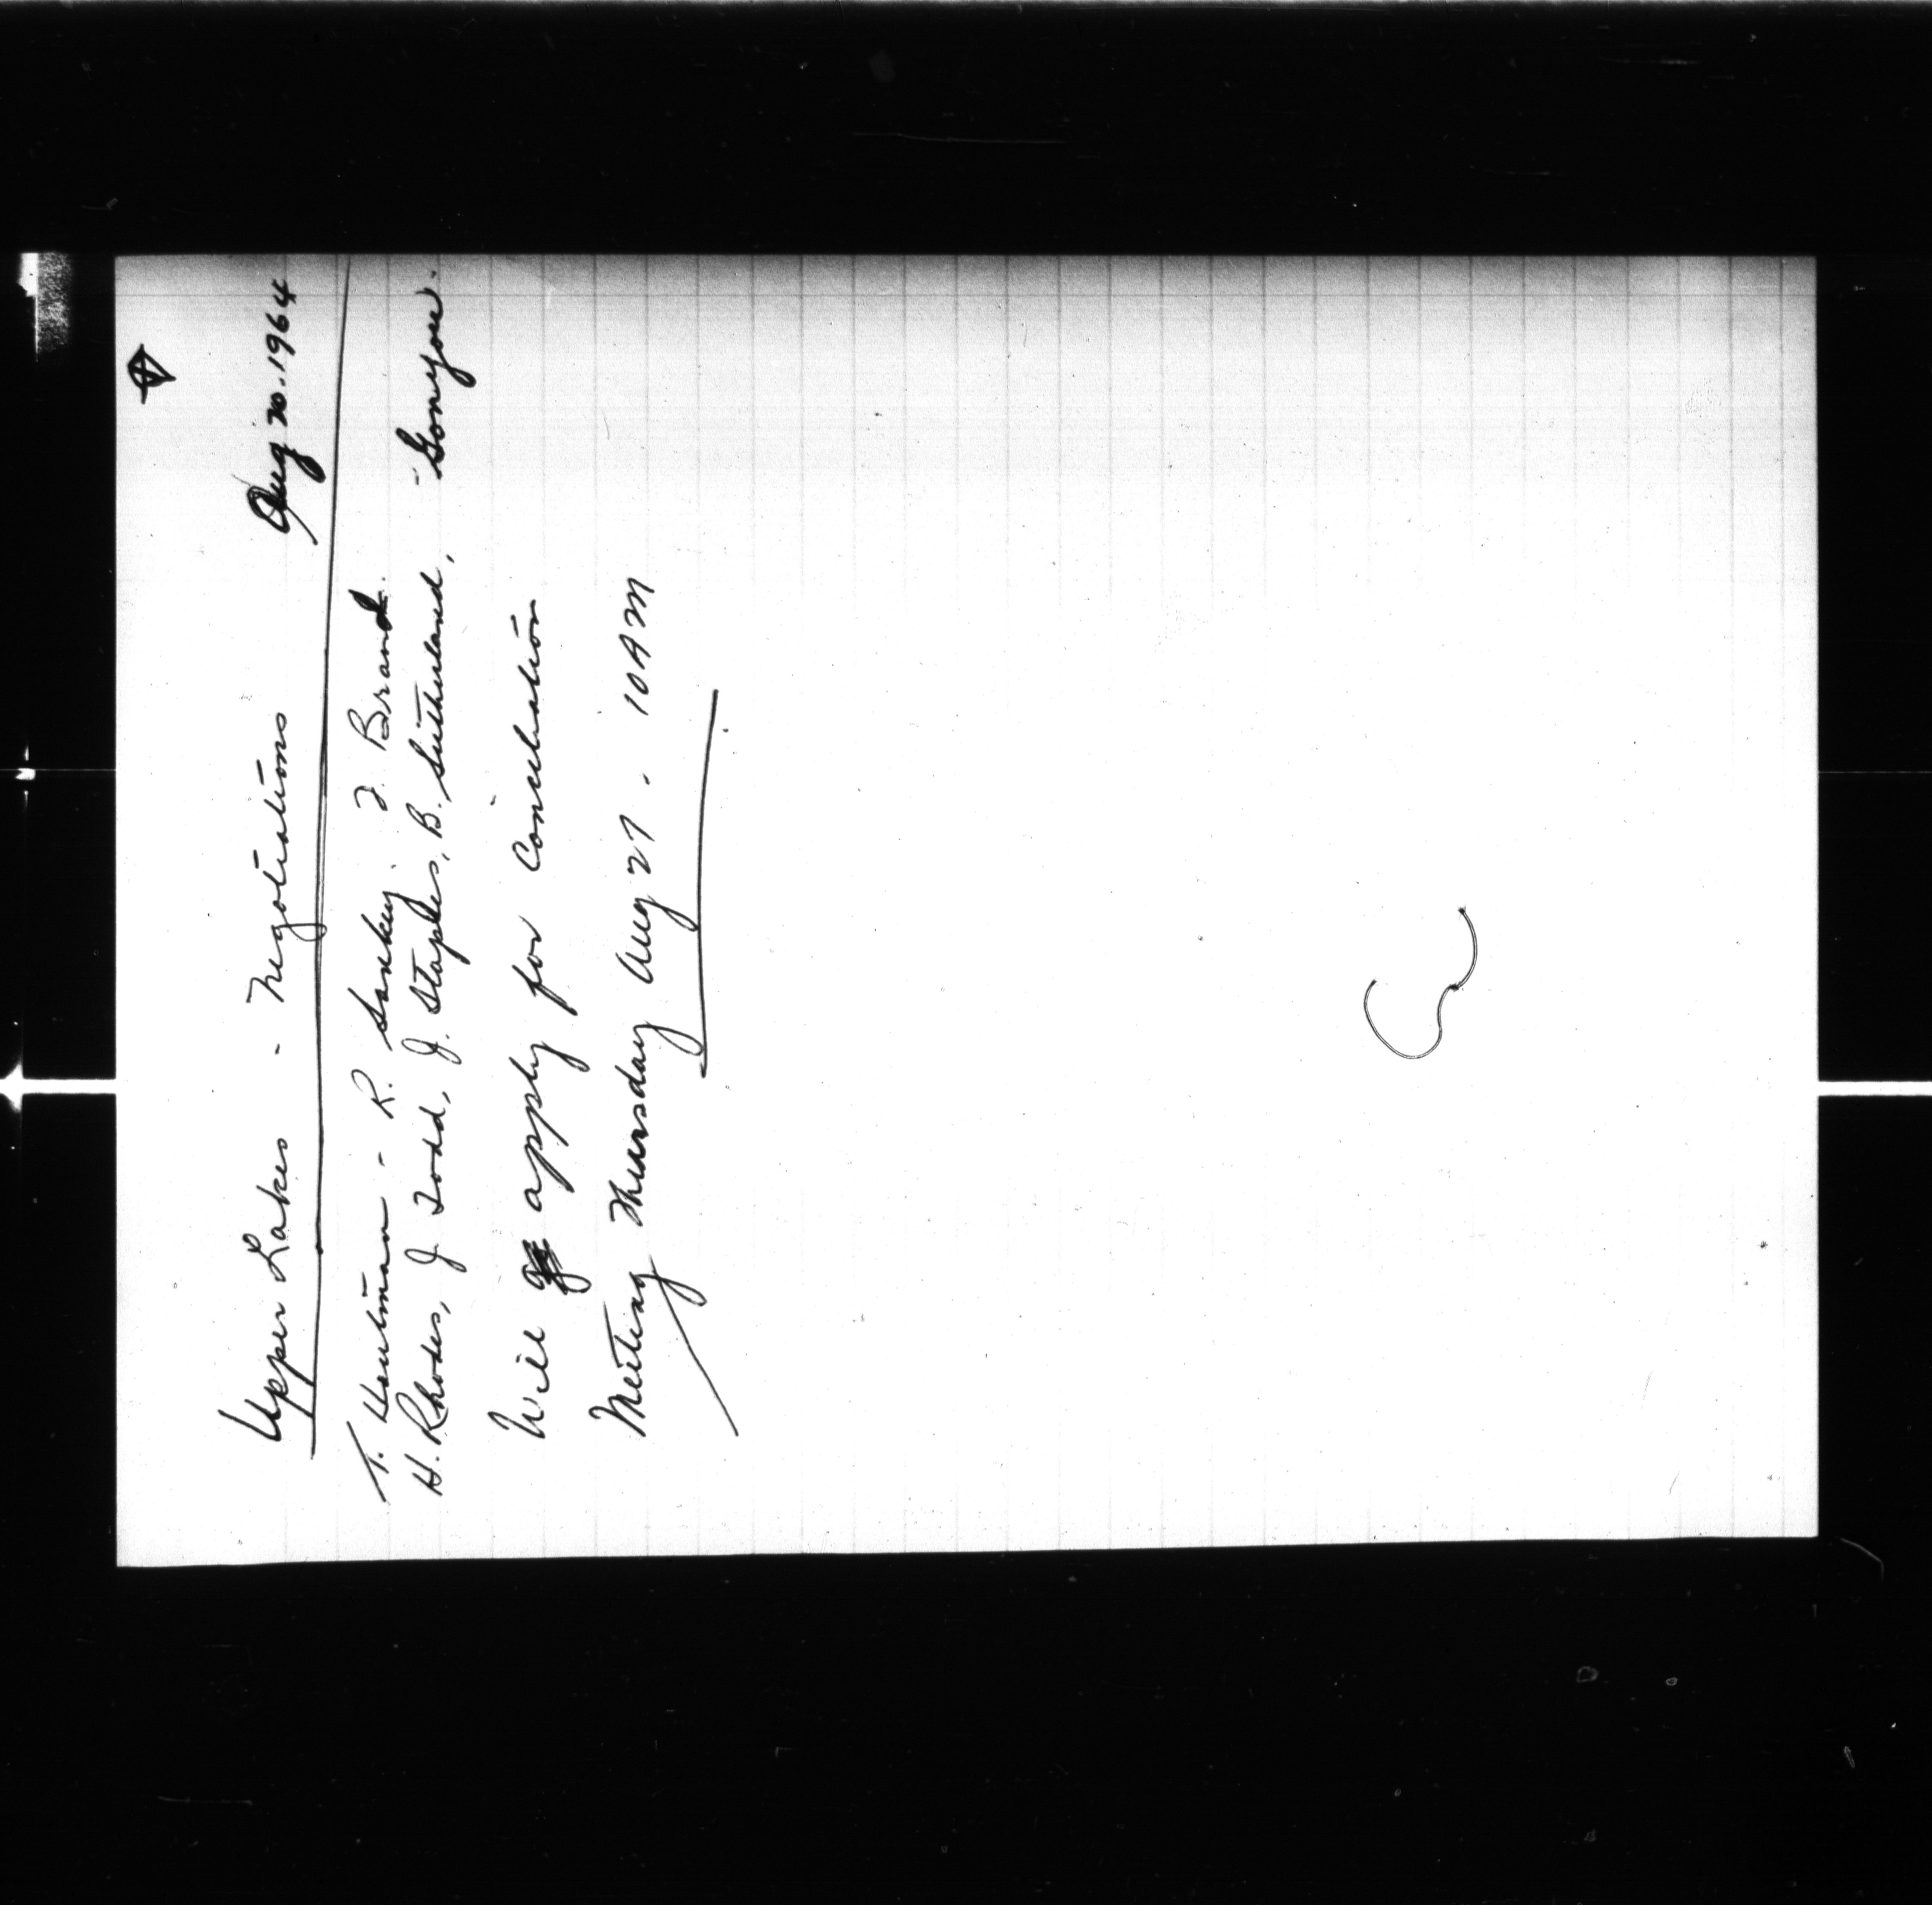 Upper Lakes - Negotiations Aug 20. 1964
T. Houtman - R. Sankey. J. Brand.
H. Rhodes, J Todd, J. Staples, B. Sutherland, Gonyou.
Will apply for Conciliation
Meeting Thursday Aug 27. 10 AM